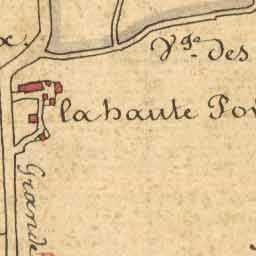 x.
V.ge des
la haute
Grande